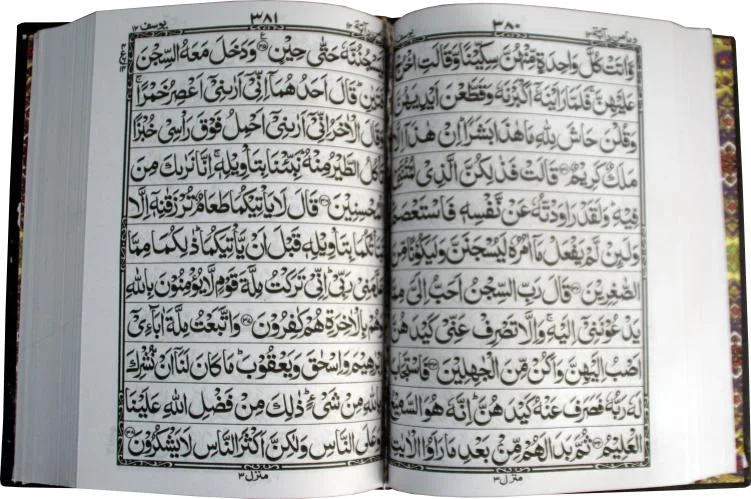 ٣٨٠
وَّاٰتَتْ كُلَّ وَاحِدَةٍ مِّنْهُنَّ سِكِّيْنًا وَّقَالَتِ اخْرُجْ
عَلَيْهِنَّ ۚ فَلَمَّا رَاَيْنَهٗۤ اَكْبَرْنَهٗ وَقَطَّعْنَ اَيْدِيَهُنَّ
وَقُلْنَ حَاشَ لِلّٰهِ مَا هٰذَا بَشَرًا ؕ اِنْ هٰذَاۤ اِلَّا
مَلَكٌ كَرِيْمٌ ۝۳۱ قَالَتْ فَذٰلِكُنَّ الَّذِيْ لُمْتُنَّنِيْ
فِيْهِ ؕ وَلَقَدْ رَاوَدْتُّهٗ عَنْ نَّفْسِهٖ فَاسْتَعْصَمَ
وَلَئِنْ لَّمْ يَفْعَلْ مَاۤ اٰمُرُهٗ لَيُسْجَنَنَّ وَلَيَكُوْنًا مِّنَ
الصّٰغِرِيْنَ ۝۳۲ قَالَ رَبِّ السِّجْنُ اَحَبُّ اِلَيَّ مِمَّا
يَدْعُوْنَنِيْۤ اِلَيْهِ ۚ وَاِلَّا تَصْرِفْ عَنِّيْ كَيْدَهُنَّ
اَصْبُ اِلَيْهِنَّ وَاَكُنْ مِّنَ الْجٰهِلِيْنَ ۝۳۳ فَاسْتَجَابَ
لَهٗ رَبُّهٗ فَصَرَفَ عَنْهُ كَيْدَهُنَّ ؕ اِنَّهٗ هُوَ السَّمِيْعُ
الْعَلِيْمُ ۝۳۴ ثُمَّ بَدَا لَهُمْ مِّنْۢ بَعْدِ مَا رَاَوُا الْاٰيٰتِ
منزل ٣
يوسف ١٢
٣٨١
لَيَسْجُنُنَّهٗ حَتّٰى حِيْنٍ ۝۳۵ وَدَخَلَ مَعَهُ السِّجْنَ
فَتَيٰنِ ؕ قَالَ اَحَدُهُمَاۤ اِنِّيْۤ اَرٰىنِيْۤ اَعْصِرُ خَمْرًا ۚ
وَقَالَ الْاٰخَرُ اِنِّيْۤ اَرٰىنِيْۤ اَحْمِلُ فَوْقَ رَاْسِيْ خُبْزًا
تَاْكُلُ الطَّيْرُ مِنْهُ ؕ نَبِّئْنَا بِتَاْوِيْلِهٖ ۚ اِنَّا نَرٰىكَ مِنَ
الْمُحْسِنِيْنَ ۝۳۶ قَالَ لَا يَاْتِيْكُمَا طَعَامٌ تُرْزَقٰنِهٖۤ اِلَّا
نَبَّاْتُكُمَا بِتَاْوِيْلِهٖ قَبْلَ اَنْ يَّاْتِيَكُمَا ؕ ذٰلِكُمَا مِمَّا
عَلَّمَنِيْ رَبِّيْ ؕ اِنِّيْ تَرَكْتُ مِلَّةَ قَوْمٍ لَّا يُؤْمِنُوْنَ بِاللّٰهِ
وَهُمْ بِالْاٰخِرَةِ هُمْ كٰفِرُوْنَ ۝۳۷ وَاتَّبَعْتُ مِلَّةَ اٰبَآءِيْۤ
اِبْرٰهِيْمَ وَاِسْحٰقَ وَيَعْقُوْبَ ؕ مَا كَانَ لَنَاۤ اَنْ نُّشْرِكَ
بِاللّٰهِ مِنْ شَيْءٍ ؕ ذٰلِكَ مِنْ فَضْلِ اللّٰهِ عَلَيْنَا
وَعَلَى النَّاسِ وَلٰكِنَّ اَكْثَرَ النَّاسِ لَا يَشْكُرُوْنَ ۝۳۸
منزل ٣